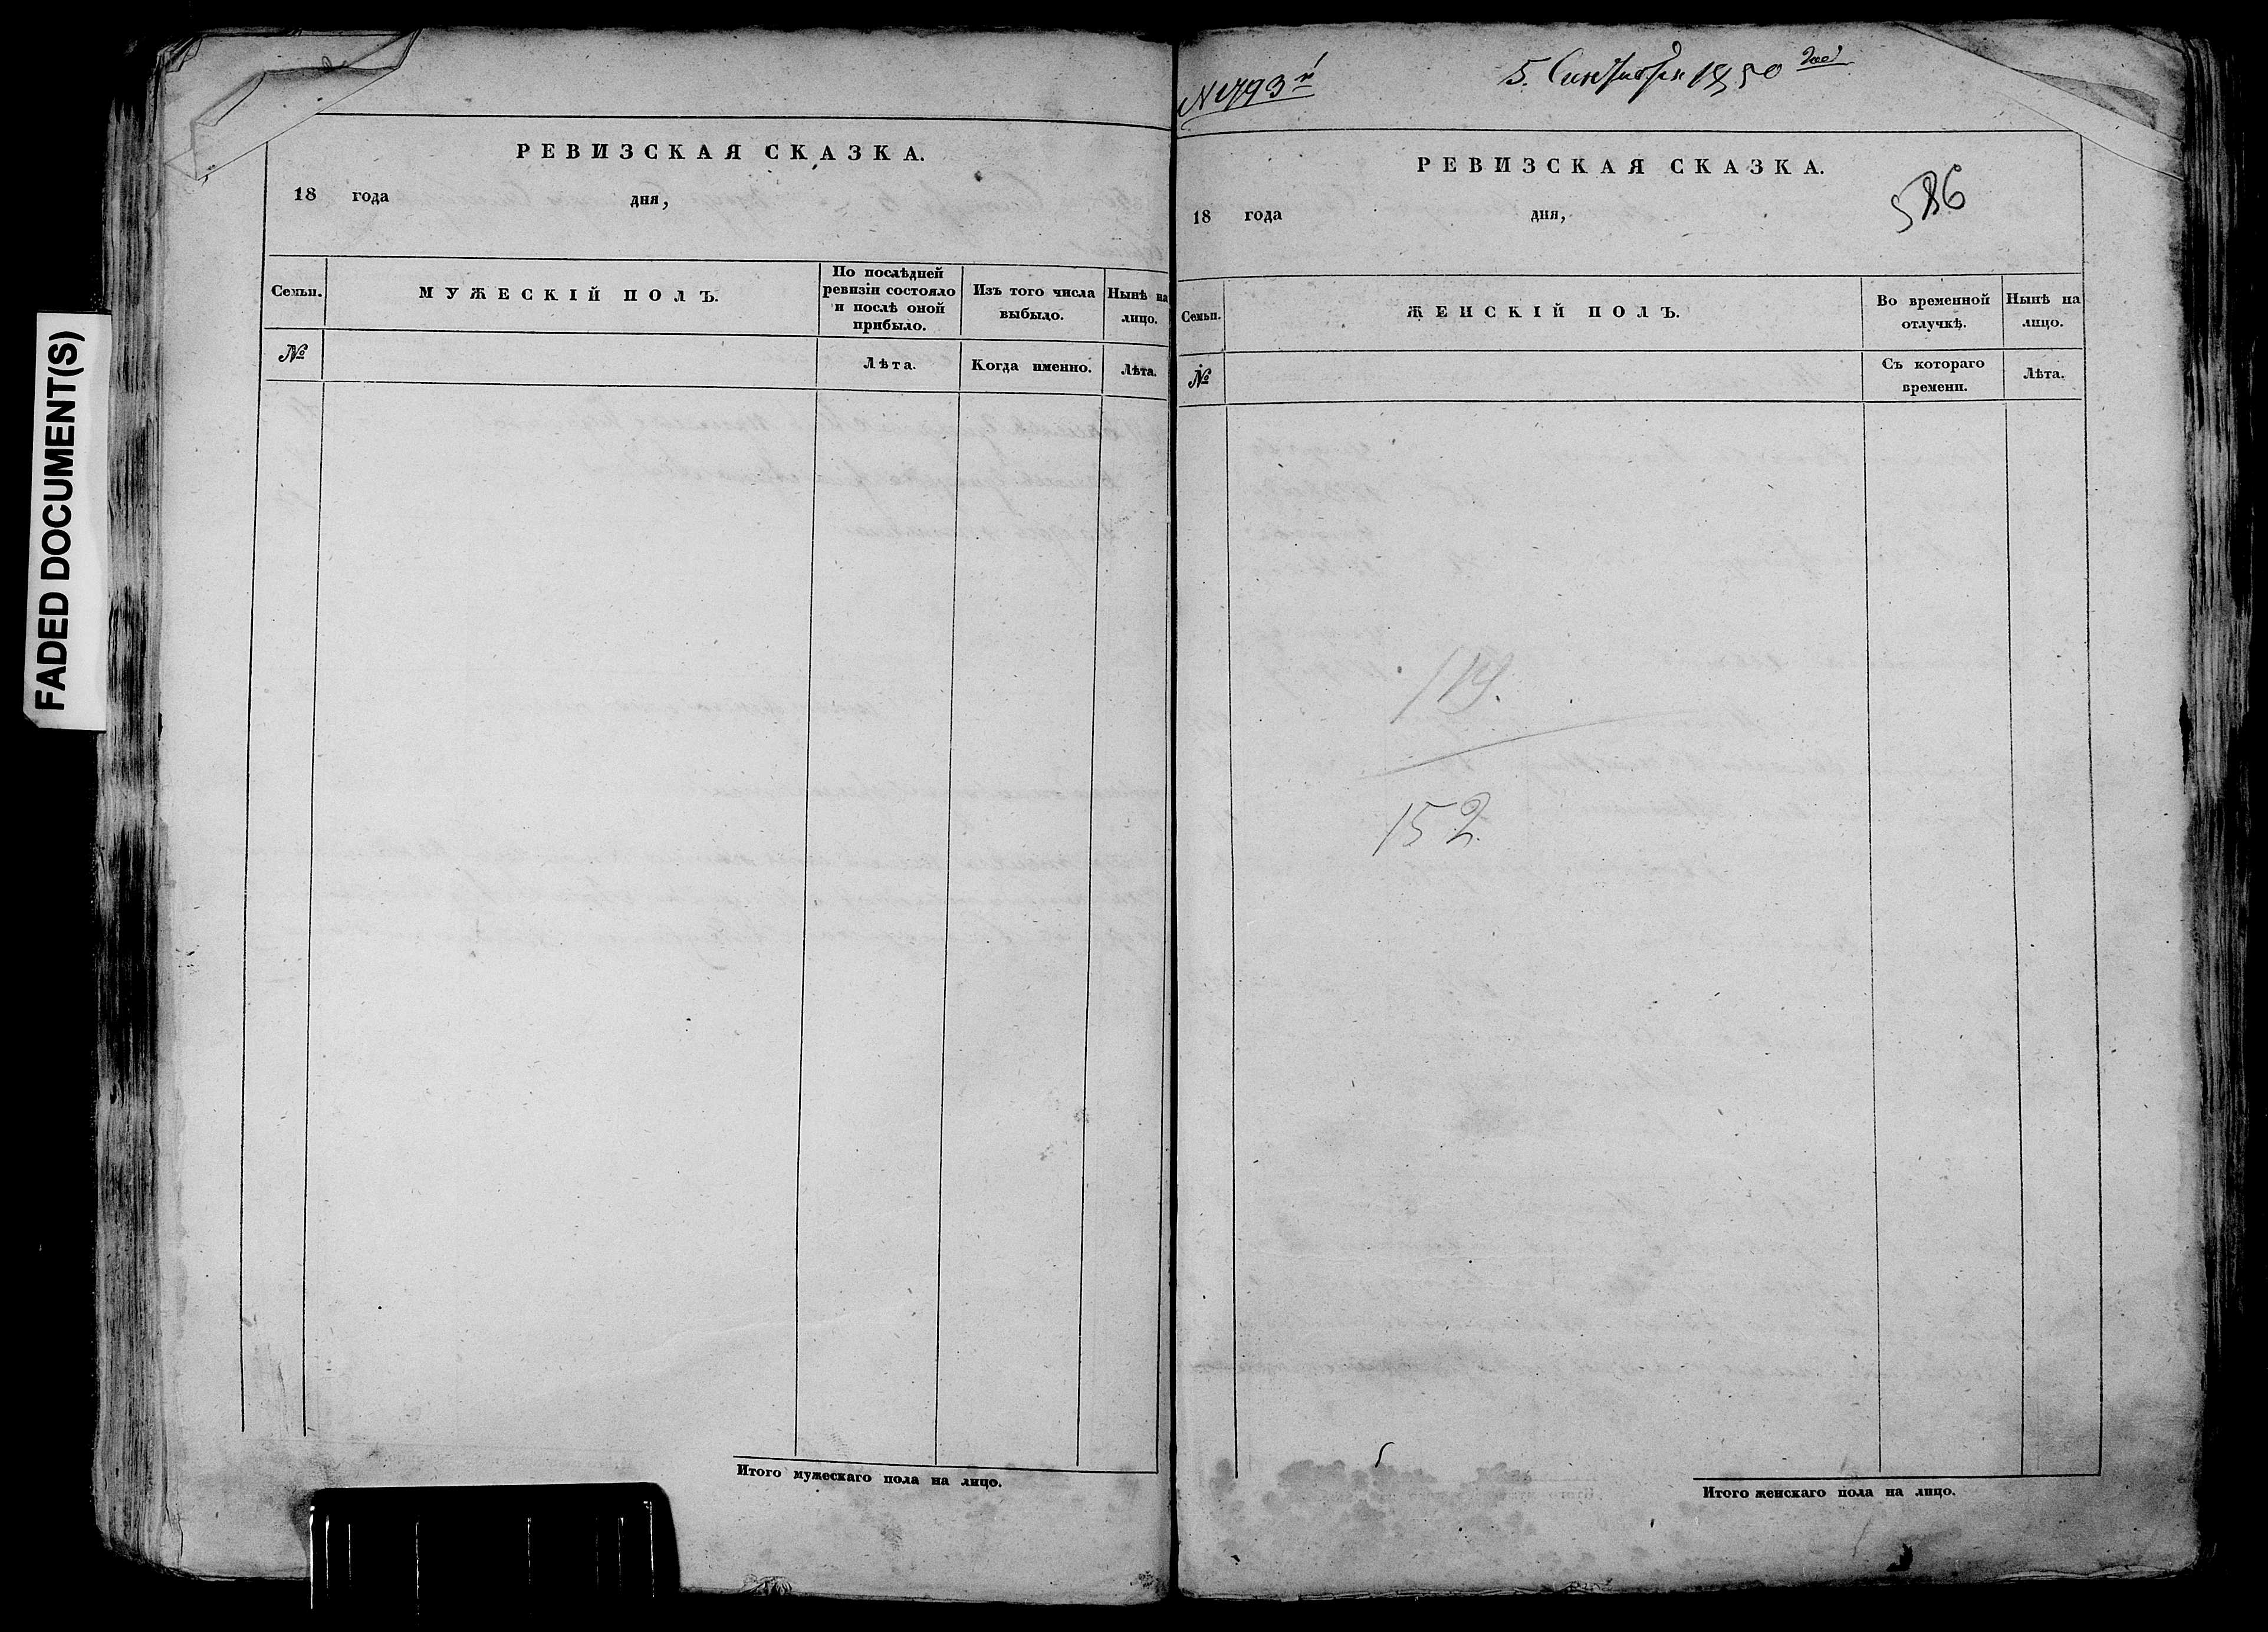 FADED DOCUMENT(S)
РЕВИЗСКАЯ СКАЗКА.
18 года дня,
Семьи. МУЖЕСКІЙ ПОЛЪ. По послѣдней ревизіи состояло и послѣ оной прибыло. Изъ того числа выбыло. Нынѣ на лицо.
№ Лѣта. Когда именно. Лѣта.
Итого мужескаго пола на лицо.
5. Сентября 1850 года
РЕВИЗСКАЯ СКАЗКА.
586
18 года дня,
Семьи. ЖЕНСКІЙ ПОЛЪ. Во временной отлучкѣ. Нынѣ на лицо.
№ Съ котораго времени. Лѣта.
119.
152.
Итого женскаго пола на лицо.